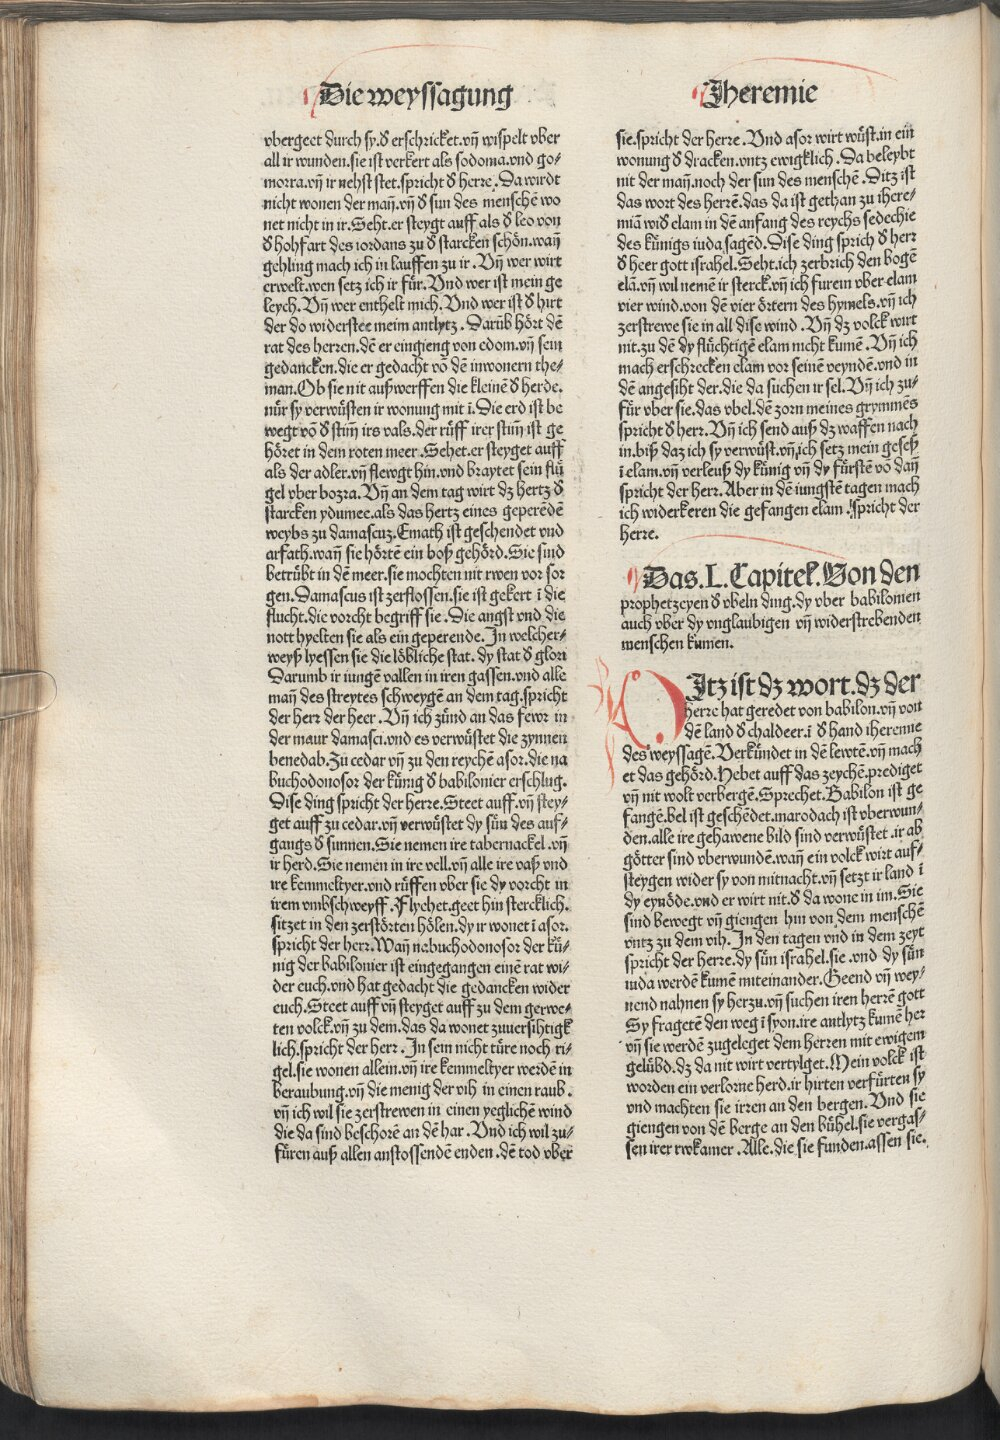 Die weyssagung
Jheremie
vbergeet durch sy.d̕ erschricket.vn̄ wispelt vber
all ir wunden.sie ist verkert als sodoma.vnd go⸗
morra.vn̄ ir nehst stet.spricht d̕ herre. Da wirdt
nicht wonen der man̄.vn̄ d̕ sun des menschē wo
net nicht in ir. Seht.er steygt auff als d̕ leo von
d̕ hohfart des iordans zu d̕ starcken schön.wan̄
gehling mach ich in lauffen zu ir. Vn̄ wer wirt
erwelt.wen setz ich ir für. Vnd wer ist mein ge
leych. Vn̄ wer enthelt mich. Vnd wer ist d̕ hirt
der do widerstee meim antlytz. Darūb hört dē
rat des herren.dē er eingieng von edom.vn̄ sein
gedancken.die er gedacht vō dē inwonern the⸗
man. Ob sie nit außwerffen die kleinē d̕ herde.
nür sy verwüsten ir wonung mit ī. Die erd ist be
wegt vō d̕ stim̄ irs vals.der rüff irer stim̄ ist ge
höret in dem roten meer. Sehet.er steyget auff
als der adler.vn̄ flewgt hin.vnd braytet sein flü
gel vber bozra. Vn̄ an dem tag wirt dz hertz d̕
starcken ydumee.als das hertz eines geperēdē
weybs zu damascuz. Emath ist geschendet vnd
arfath.wan̄ sie hörtē ein boß gehörd. Sie sind
betrübt in dē meer.sie mochten nit rwen vor sor
gen. Damascus ist zerflossen.sie ist gekert ī die
flucht.die vorcht begriff sie. Die angst vnd die
nott hyelten sie als ein geperende. In welcher⸗
weyß lyessen sie die löbliche stat. dy stat d̕ glori
Darumb ir iungē vallen in iren gassen.vnd alle
man̄ des streytes schweygē an dem tag.spricht
der herr der heer. Vn̄ ich zünd an das fewr in
der maur damasci.vnd es verwüstet die zynnen
benedab. Zu cedar vn̄ zu den reychē asor.die na
buchodonosor der künig d̕ babilonier erschlug.
Dise ding spricht der herre. Steet auff.vn̄ stey⸗
get auff zu cedar.vn̄ verwüstet dy sün des auf⸗
gangs d̕ sunnen. Sie nemen ire tabernackel.vn̄
ir herd. Sie nemen in ire vell.vn̄ alle ire vaß vnd
ire kemmeltyer.vnd rüffen vber sie dy vorcht in
irem vmbschweyff. Flyehet.geet hin stercklich.
sitzet in den zerstörten hölen.dy ir wonet ī asor.
spricht der herr. Wan̄ nabuchodonosor der kü⸗
nig der babilonier ist eingegangen einē rat wi⸗
der euch.vnd hat gedacht die gedancken wider
euch. Steet auff vn̄ steyget auff zu dem gerwe⸗
ten volck.vn̄ zu dem.das da wonet zuuersihtigk
lich.spricht der herr. In sein nicht türe noch ri⸗
gel.sie wonen allein.vn̄ ire kemmeltyer werdē in
beraubung.vn̄ die menig der vih in einen raub.
vn̄ ich wil sie zerstrewen in einen yeglichē wind
die da sind beschorē an dē har. Vnd ich wil zu⸗
füren auß allen anstossendē enden. dē tod vber
sie.spricht der herre. Vnd asor wirt wüst.in ein
wonung d̕ dracken.vntz ewigklich. Da beleybt
nit der man̄.noch der sun des menschē. Ditz ist
das wort des herrē.das da ist gethan zu ihere⸗
miā wid̕ elam in dē anfang des reychs sedechie
des künigs iuda.sagēd. Dise ding sprich d̕ herr
d̕ heer gott israhel. Seht.ich zerbrich den bogē
elā.vn̄ wil nemē ir sterck.vn̄ ich furein vber elam
vier wind.von dē vier örtern des hymels.vn̄ ich
zerstrewe sie in all dise wind. Vn̄ dz volck wirt
nit.zu dē dy flüchtigē elam nicht kumē. Vn̄ ich
mach erschrecken elam vor seinē veyndē.vnd in
dē angesiht der.die da suchen ir sel. Vn̄ ich zu⸗
für vber sie.das vbel.dē zorn meines grymmēs
spricht d̕ herr. Vn̄ ich send auß dz waffen nach
in.biß daz ich sy verwüst.vn̄ ich setz mein geseß
ī elam.vn̄ verleuß dy künig vn̄ dy fürstē vō dan̄
spricht der herr. Aber in dē iungstē tagen mach
ich widerkeren die gefangen elam. spricht der
herre.
Das. L. Capitel. Von den
prophetzeyen d̕ vbeln ding.dy vber babilonien
auch vber dy vnglaubigen vn̄ widerstrebenden
menschen kumen.
DItz ist dz wort.dz der
herre hat geredet von babilon.vn̄ von
dē land d̕ chaldeer.ī d̕ hand iheremie
des weyssagē. Verkündet in dē lewtē.vn̄ mach
et das gehörd. Hebet auff das zeychē.prediget
vn̄ nit wolt verbergē. Sprechet. Babilon ist ge
fangē.bel ist geschēdet.marodach ist vberwun⸗
den.alle ire gehawene bild sind verwüstet.ir ab
götter sind vberwundē.wan̄ ein volck wirt auf⸗
steygen wider sy von mitnacht.vn̄ setzt ir land ī
dy eynöde.vnd er wirt nit.d̕ da wone in im. Sie
sind bewegt vn̄ giengen hin von dem menschē
vntz zu dem vih. In den tagen vnd in dem zeyt
spricht der herre.dy sün israhel.sie.vnd dy sün
iuda werdē kumē miteinander. Geend vn̄ wey⸗
nend nahnen sy herzu.vn̄ suchen iren herrē gott
Sy fragetē den weg ī syon.ire antlytz kumē her
vn̄ sie werdē zugeleget dem herren mit ewigem
gelübd.dz da nit wirt vertylget. Mein volck ist
worden ein verlorne herd.ir hirten verfürten sy
vnd machten sie irren an den bergen. Vnd sie
giengen von dē berge an den bühel.sie vergas⸗
sen irer rwkamer. Alle.die sie funden.assen sie.